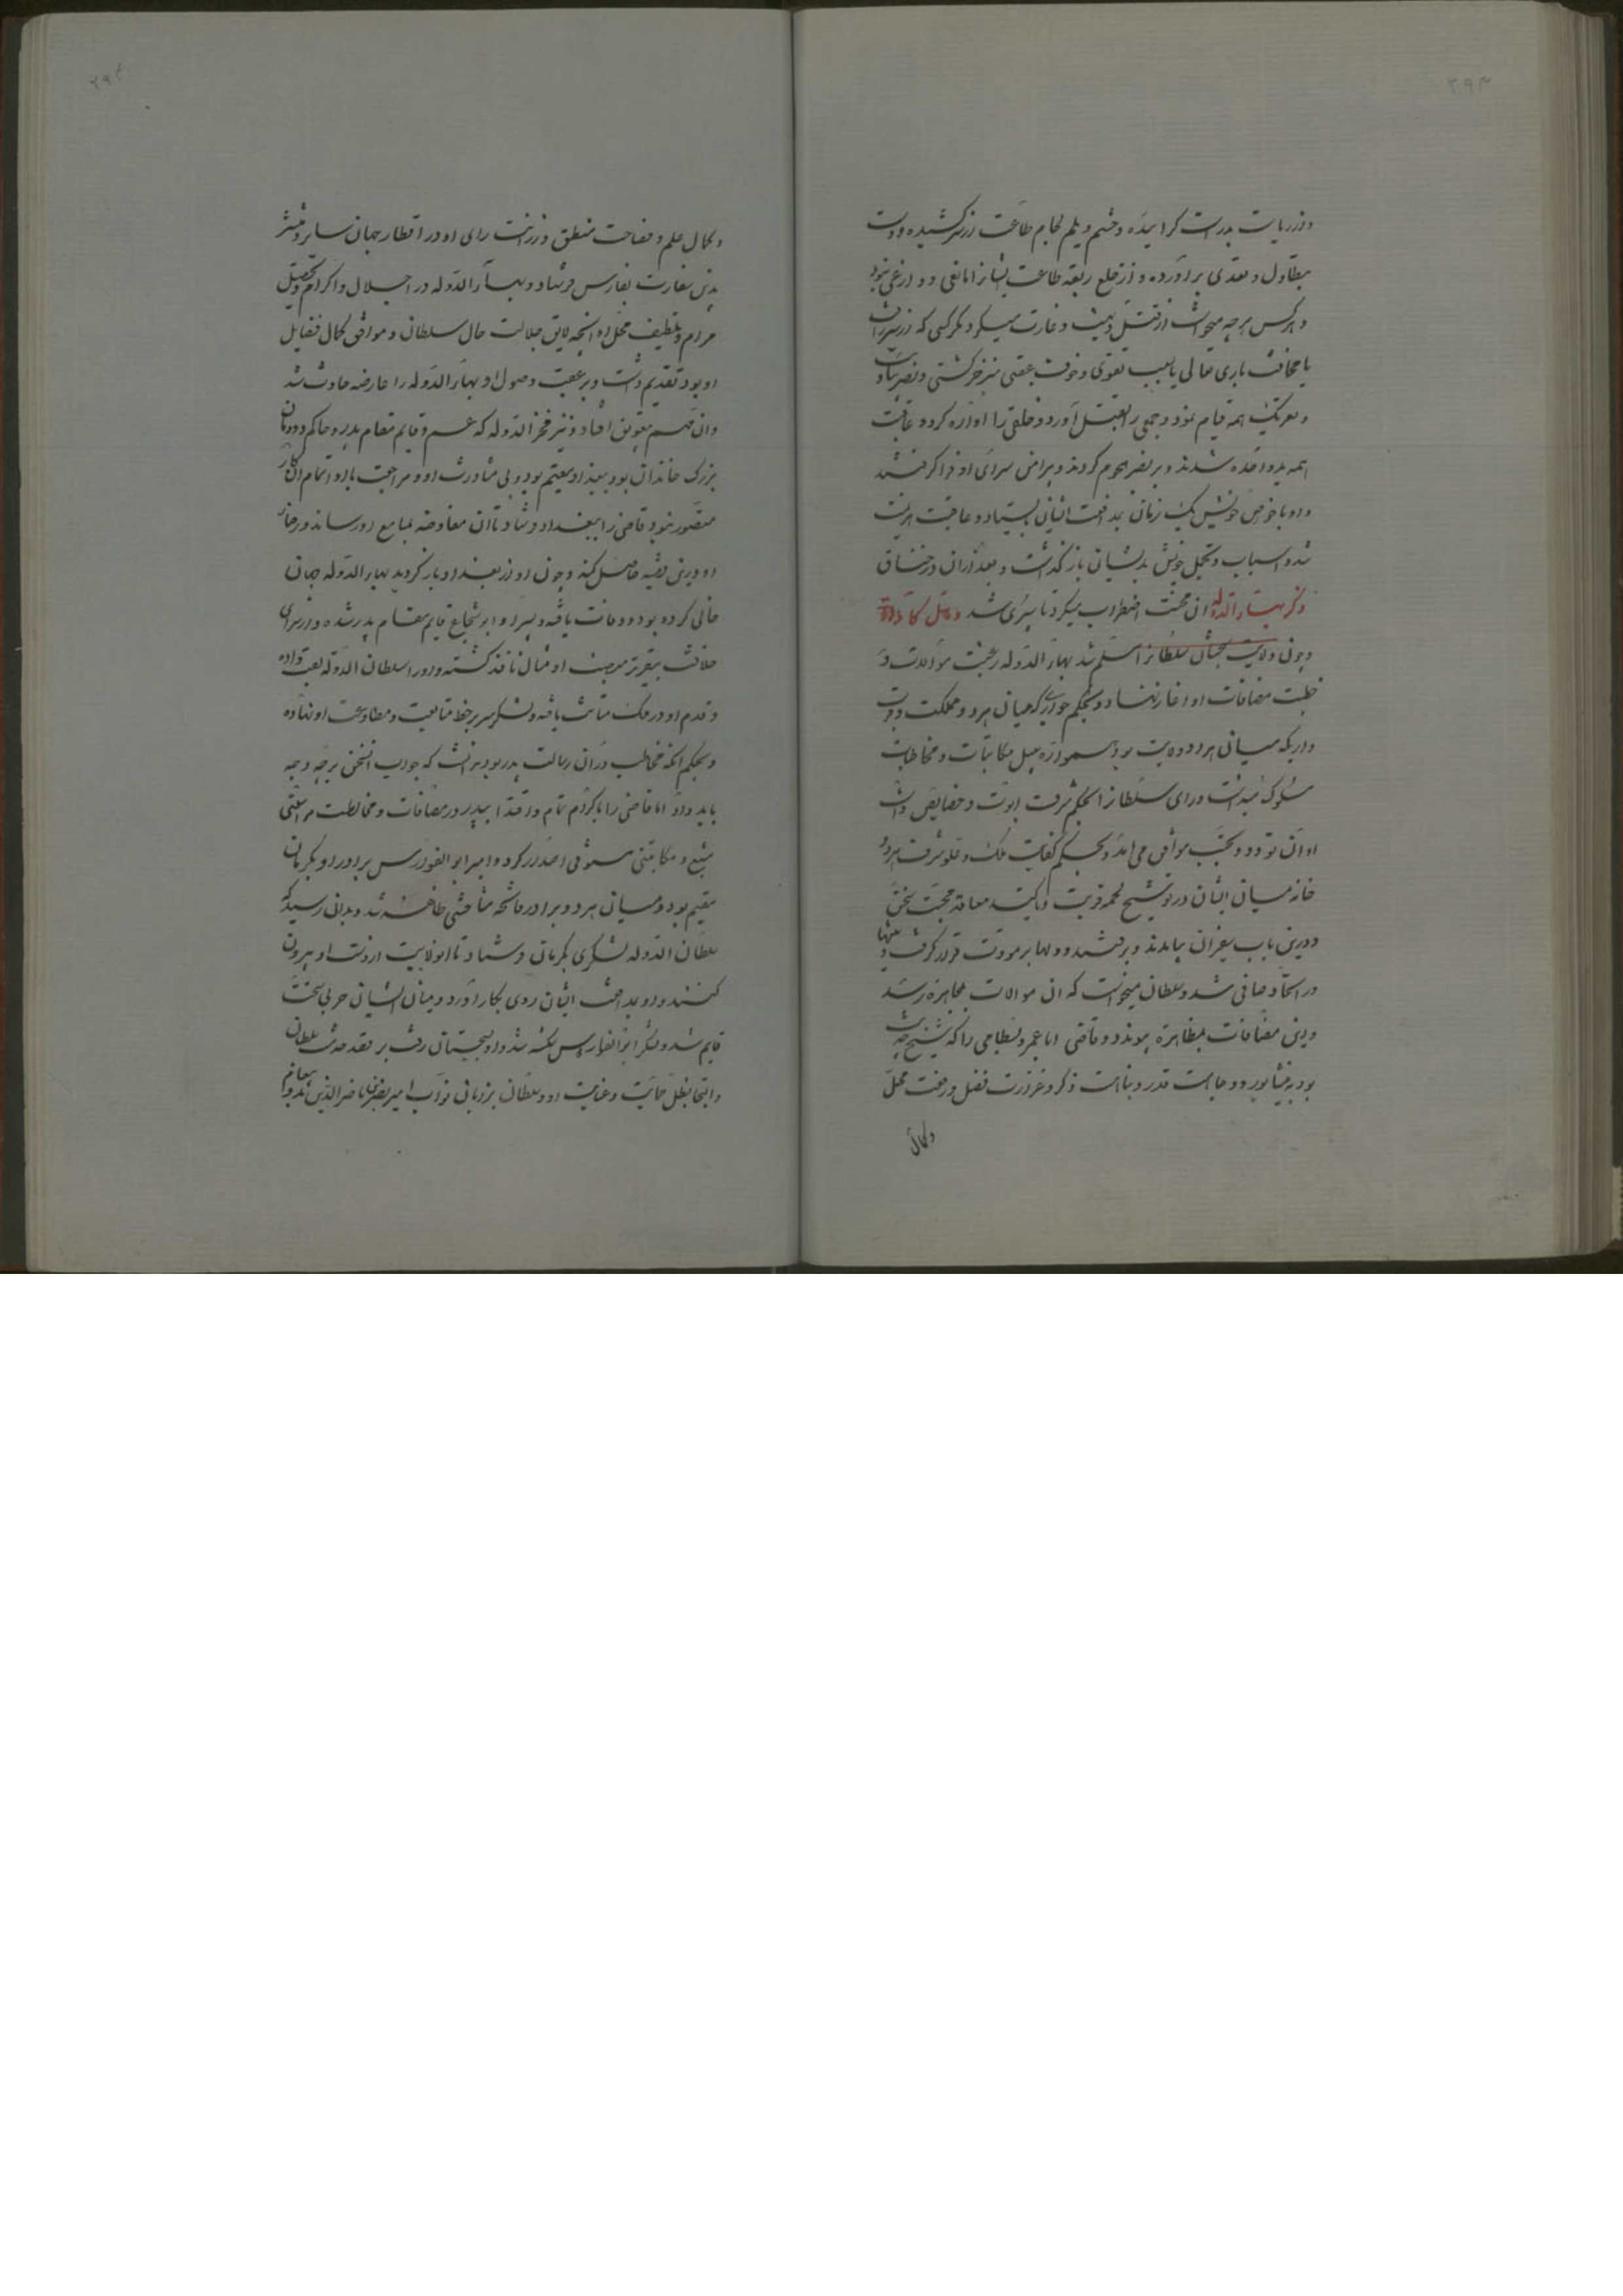 ۲۹۳
و هر کس هر چه میخواست از قتل و نهب و غارت میکرد مگر کسی که از
با مخافت باری تعالی یا بسبب تقوی و خوف عقبی منزجر گشتی و نصر
و تحریک همه قیام نمود و جمعی را بقتل آورد و خلقی را آواره کرد و عاقبت
همه بدو آمده شدند و بر نصر هجوم کردند و پیرامن سرای او فرا گرفتند
و او با خواص خویش یک زمان بمدافعت ایشان بایستاد و عاقبت هزیمت
شد و اسباب و تجمل خویش بدیشان باز گذاشت و بعد از آن در خناق
آن محنت اضطراب میکرد تا سپری شد ذکر بهاء الدوله
و چون ولایت سجستان سلطان را مسلم شد بهاء الدوله رغبت موالات و
خطبت مصافات او آغاز نهاد و بحکم جواری که میان هر دو مملکت و قرب
داری که میان هر دو ولایت بود همواره سبیل مکاتبات و مخاطبات
مسلوک میداشت و رای سلطان را بحکم شرف ابوت و خصایص ذات
او آن تودد و تحبب موافق می آمد و بحکم کفایت ملک و علو شرف هر دو
خانه میان ایشان در توشیح لحمه قربت و تاکید معاقد محبت سخن
و درین باب سفیران بیامدند و برفتند و دلها بر مودت قرار گرفت و
در اتحاد صافی شد و سلطان میخواست که آن موالات بمجاهره رسد
و درین مصافات بمظاهره پیوندد و قاضی ابا عمر بسطامی را که شیخ حدیث
بود به نیشابور و وجاهت قدر و نباهت ذکر و غزارت فضل و رفعت محل
و کمال
۲۹۴
و کمال علم و فصاحت منطق و رزانت رای او در اقطار جهان سایر و منتشر
بدین سفارت بفارس فرستاد و بهاء الدوله در اجلال و اکرام و تحصیل
مرام و تلطیف محل او آنچه لایق جلالت حال سلطان و موافق کمال فضایل
او بود تقدیم داشت و بر عقب وصول او بهاء الدوله را عارضه حادث شد
و آن مهم بتعویق افتاد و نیز فخر الدوله که عم و قایم مقام پدر و حاکم دودمان
بزرگ خاندان بود ببغداد مقیم بود و بی مشاورت او و مراجعت با او اتمام آن کار
متصور نبود قاضی را ببغداد فرستاد تا آن مفاوضه بمسامع او رساند و رضای
او درین قضیه حاصل کند و چون او از بغداد باز گردید بهاء الدوله جهان
خالی کرده بود و وفات یافته و پسر او ابو شجاع قایم مقام پدر شده و از سرای
خلافت بتقریر منصب او مثال نافذ گشته و او را سلطان الدوله لقب داده
و قدم او در ملک ثبات یافته و لشکر سر بر خط متابعت و مطاوعت او نهاده
و بحکم آنکه مخاطب در آن رسالت پدر بود ندانست که جواب آن سخن بر چه وجه
باید داد اما قاضی را باکرام تمام و اقتدا بپدر در مصافات و مخالطت مراسلتی
مشبع و مکاتبتی مستوفی اصدار کرد و امیر ابو الفوارس برادر او بکرمان
مقیم بود و میان هر دو برادر مناقشتی ظاهر شد و بدان رسید که
سلطان الدوله لشکری بکرمان فرستاد تا آن ولایت از دست او بیرون
کنند و او بمدافعت ایشان روی بکار آورد و میان ایشان حربی سخت
قایم شد و لشکر ابو الفوارس شکسته شد و او بسجستان رفت بر قصد خدمت سلطان
و التجا بظل حمایت و عنایت او و سلطان بر زبان نواب امیر نصر بن ناصر الدین